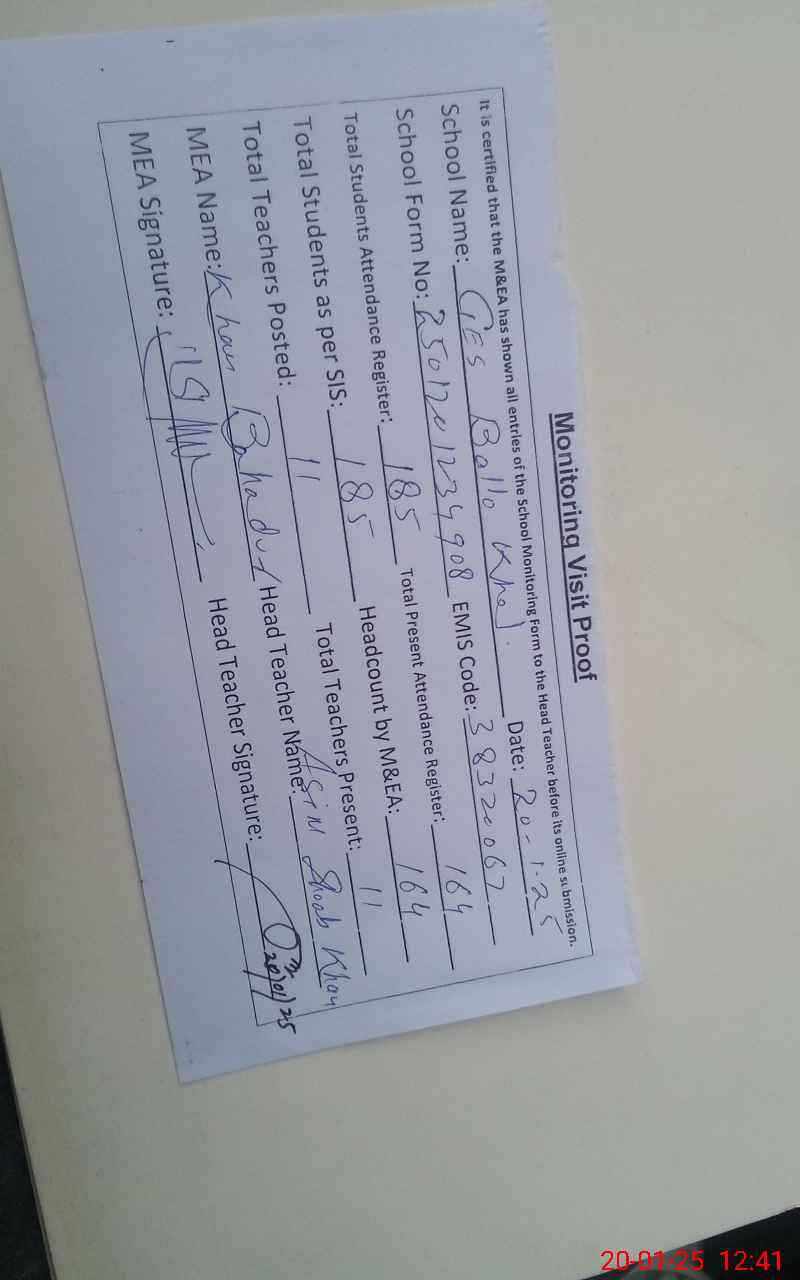 Monitoring Visit Proof
It is certified that the M&EA has shown all entries of the School Monitoring Form to the Head Teacher before its online submission.
School Name: GES Ballo Khel. Date: 20-1-25
School Form No: 2501201234908 EMIS Code: 38320067
Total Students Attendance Register: 185 Total Present Attendance Register: 164
Total Students as per SIS: 185 Headcount by M&EA: 164
Total Teachers Posted: 11 Total Teachers Present: 11
MEA Name: Khan Bahadur Head Teacher Name: Asim Shoab Khan
MEA Signature: Head Teacher Signature:
20/01/25
20-01-25 12:41